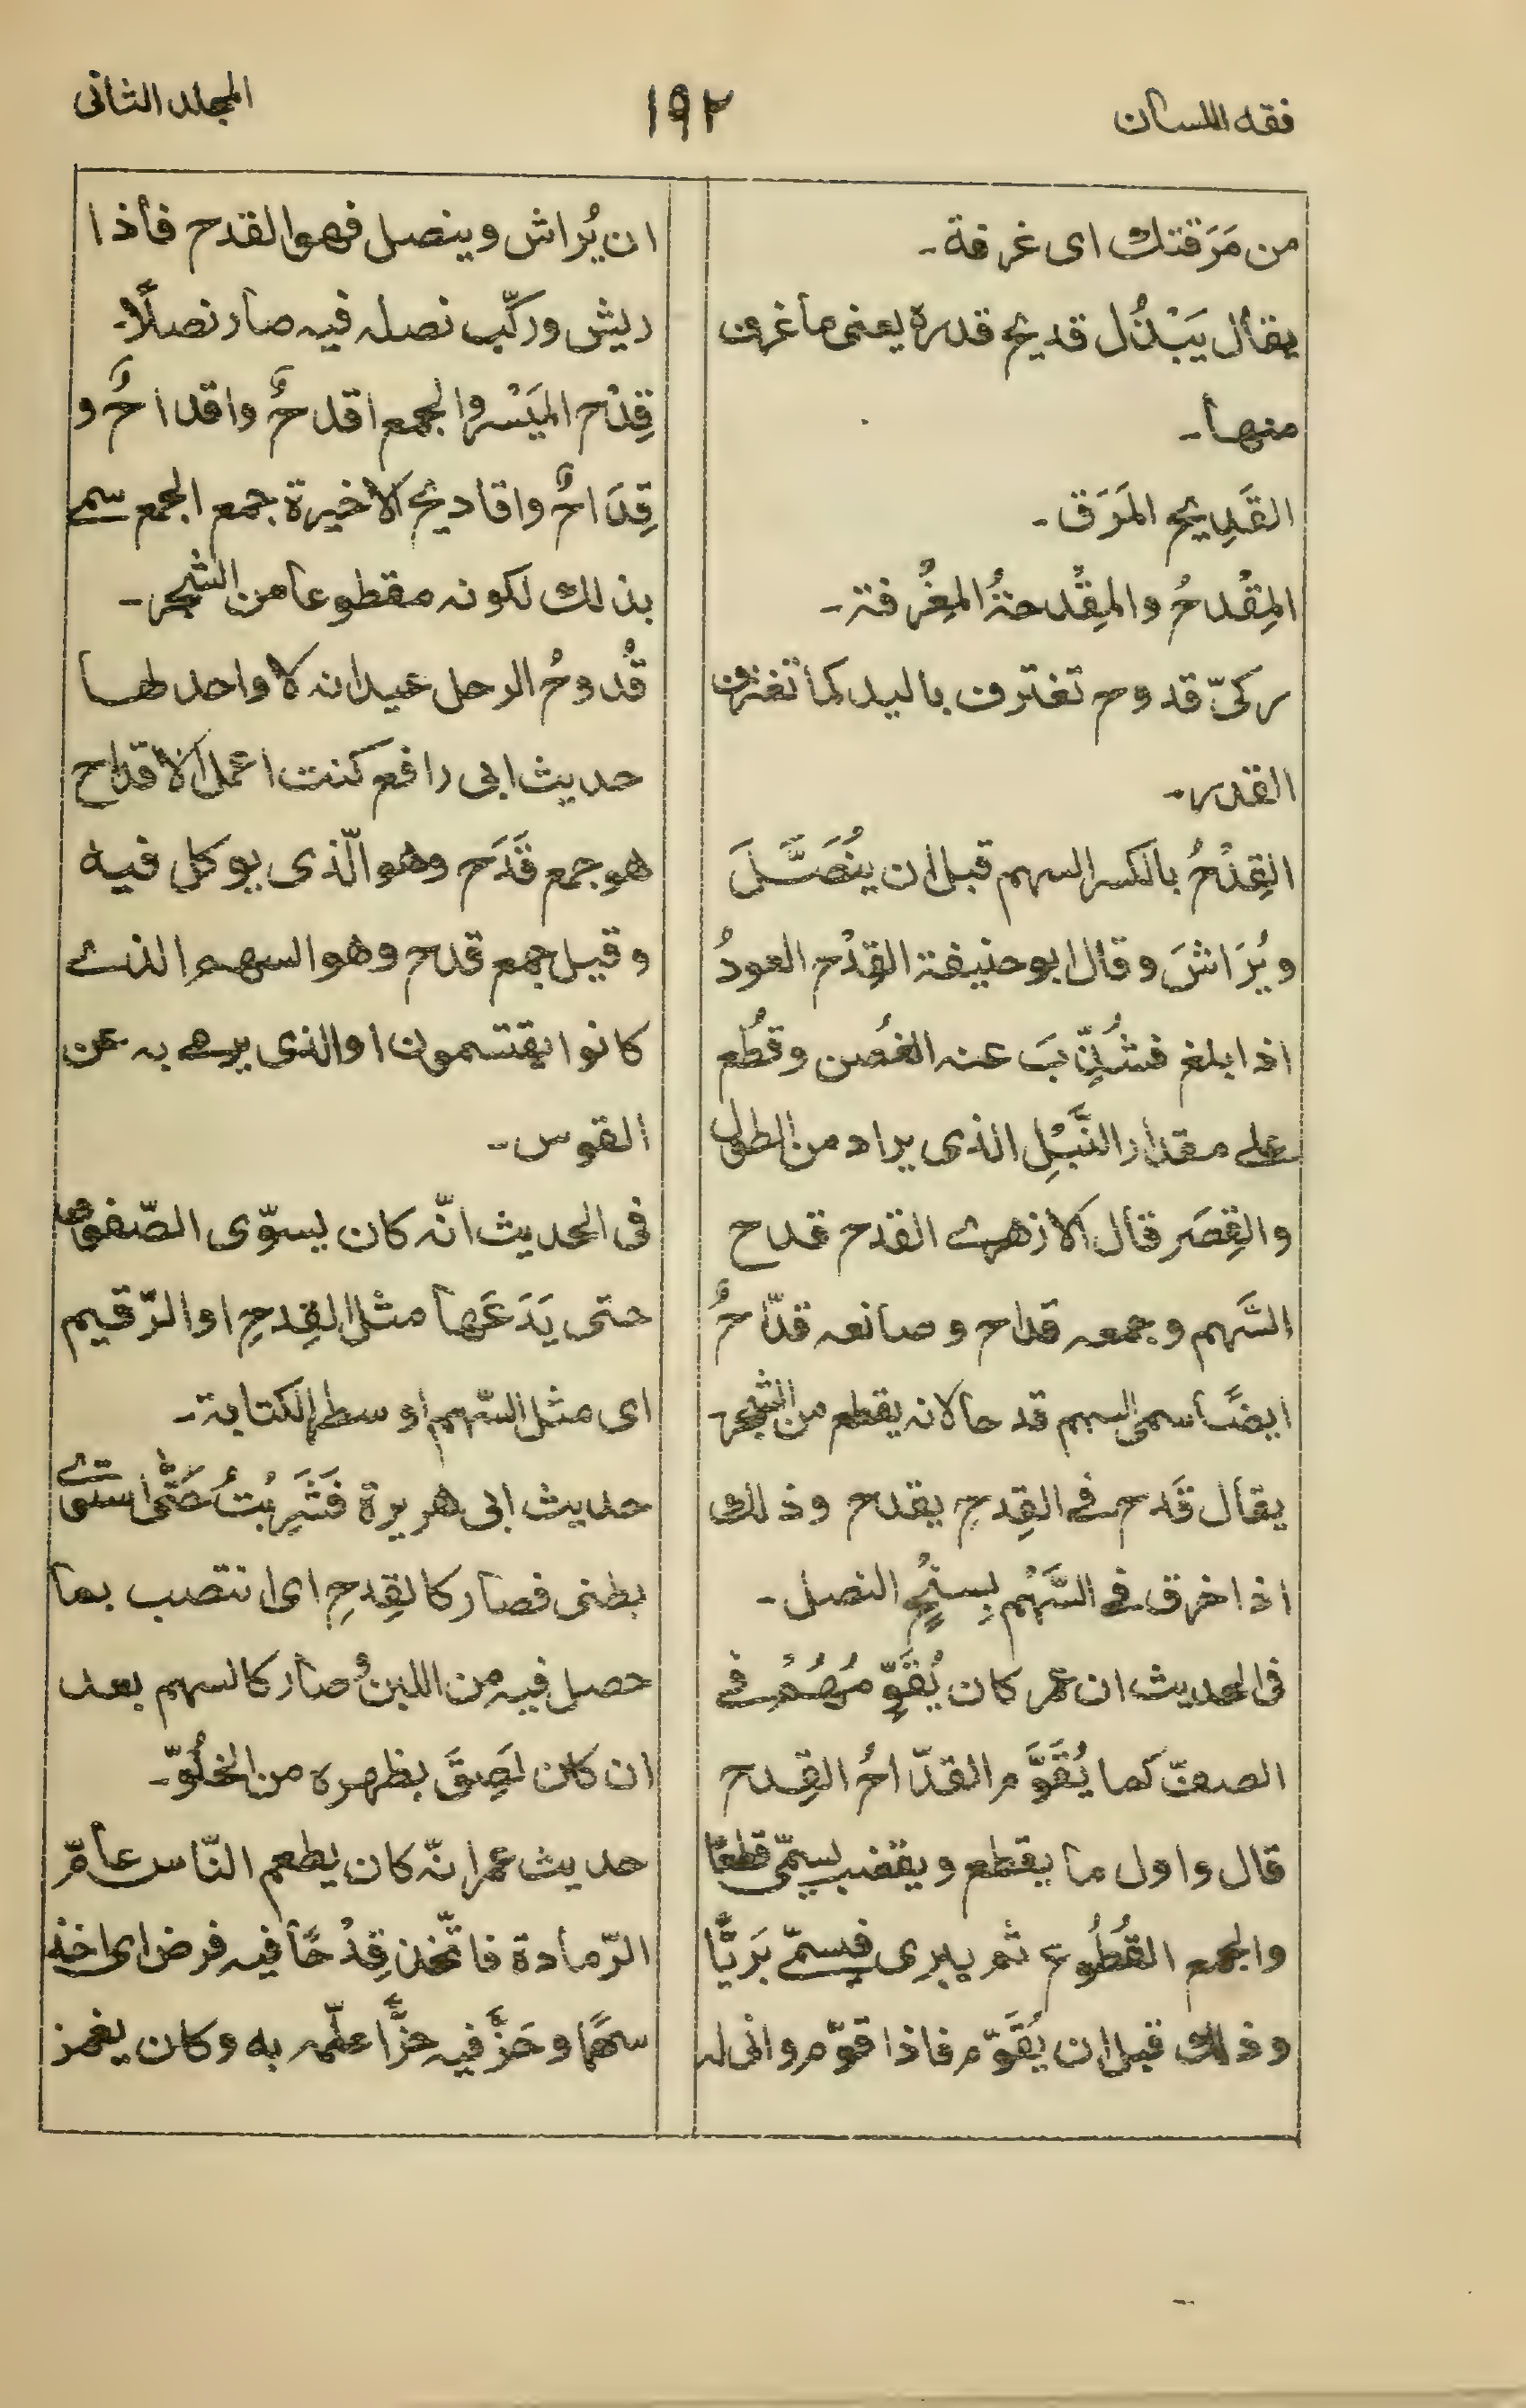 فقه اللسان
١٩٢
المجلد الثانى
من مَرَقتك اى غرفة۔
يقال يَبْذُل قديح قدره يعنى ما غرف
منها۔
القَدِيح المَرَق۔
المِقْدحُ والمِقْدحةُ المِغْرفة۔
ركىّ قدوح تغترف باليد كما تغترف
القدر۔
القِدْحُ بالكسر السهم قبل ان يُنَصَّلَ
ويُرَاشَ وقال ابو حنيفة القِدْح العودُ
اذا بلغ فشُذِّبَ عنه الغُصن وقُطع
على مقدار النَّبْلِ الذى يراد من الطول
والقِصَر قال الازهرى القدح قداح
السَّهم وجمعه قداح وصانعه قدّاحٌ
ايضًا سمى السهم قدحا لانه يقطع من الشجر۔
يقال قَدح فى القِدحِ يقدح وذلك
اذا خرق فى السَّهْم بِسِنْخِ النصل۔
فى الحديث ان عمر كان يُقَوِّمُهُمْ فى
الصفّ كما يُقَوَّم القدّاحُ القِدح
قال واول ما يقطع ويقضب يسمّى قطعًا
والجمع القُطُوع ثم يبرى فيسمّى بَرِيًّا
وذلك قبل ان يُقَوّم فاذا قوّم وانى له
ان يُراش وينصل فهو القدح فاذا
ريش وركّب نصله فيه صار نصلًا۔
قِدْح المَيْسر والجمع اقدحٌ واقداحٌ و
قِدَاحٌ واقاديح الاخيرة جمع الجمع سمى
بذلك لكونه مقطوعا من الشجر۔
قُدوحُ الرحل عيدانه لا واحد لها
حديث ابى رافع كنت اعمل الاقداح
هو جمع قَدَح وهو الّذى يوكل فيه
وقيل جمع قدح وهو السهم الذى
كانوا يقتسمون او الذى يرمى به عن
القوس۔
فى الحديث انّه كان يسوّى الصّفوف
حتى يَدَعَها مثل القِدحِ او الرّقيم
اى مثل السّهم او سطر الكتابة۔
حديث ابى هريرة فَشَرِبْتُ حَتّٰى استوى
بطنى فصار كالقِدحِ اى انتصب بما
حصل فيه من اللبن وصار كالسهم بعد
ان كان لَصِقَ بظهره من الخُلُوّ۔
حديث عمر انّه كان يطعم النّاس عام
الرّمادة فاتّخذ قِدْحًا فيه فرض اى اخذ
سهمًا وحَزَّ فيه حزًّا علّمه به وكان يغمز